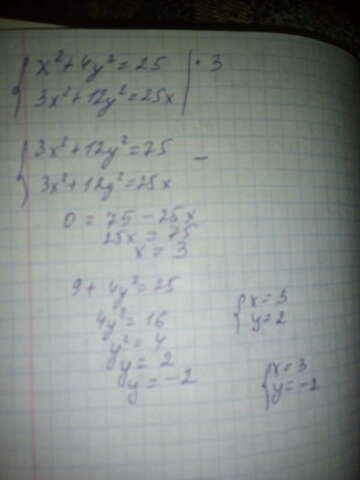 x² + 4y² = 25 | · 3
3x² + 12y² = 25x
3x² + 12y² = 75 −
3x² + 12y² = 25x
0 = 75 − 25x
25x = 75
x = 3
9 + 4y² = 25
4y² = 16
y² = 4
y = 2
y = −2
x = 3
y = 2
x = 3
y = −2